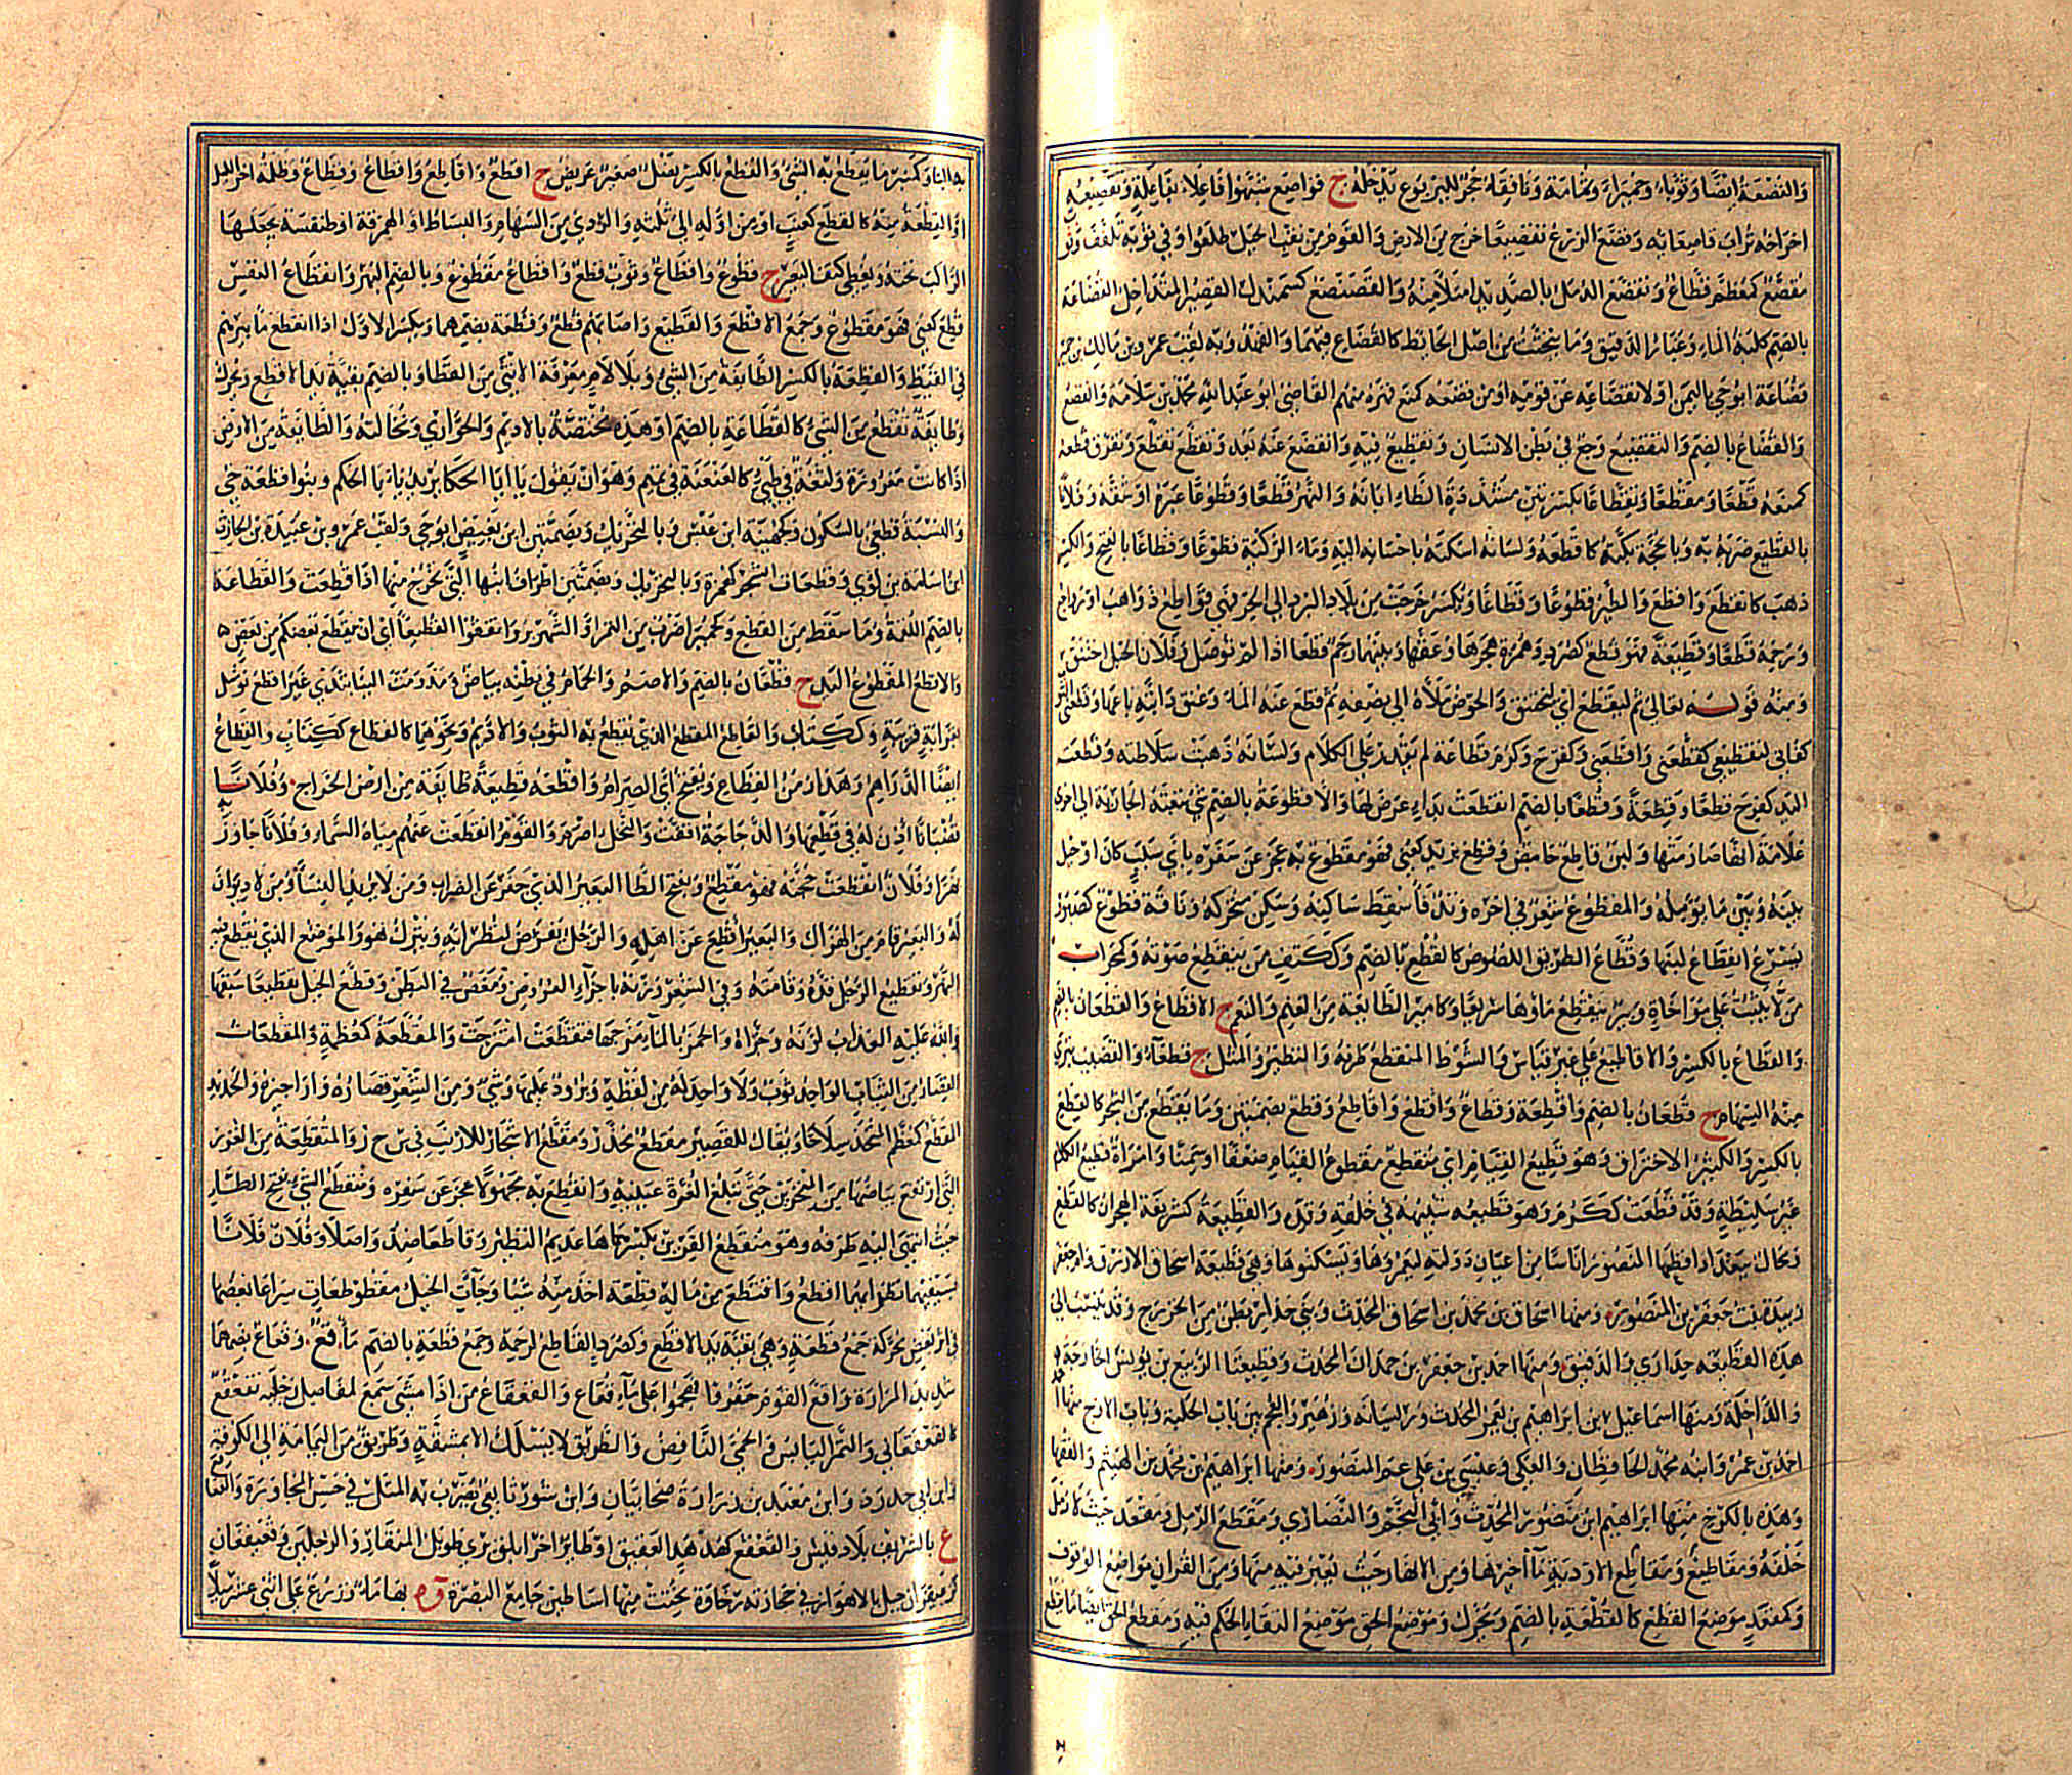 والقصعة ايضا وثوباء وحميراء وثمامة ونافقاء جحر لليربوع يدخله ج قواصع شبهوا فاعلاء بفاعلة وتقصيعه
اخراجه تراب قاصعائه وقصع الزرع تقصيعا خرج من الارض والقوم من نقب الجبل طلعوا وفي ثوبه تلفف
مقصع كمعظم وتقصع الدمل بالصديد امتلأ منه والقصنصع كسمندل القصير المتداخل القضاعة
بالضم كلبة الماء وغبار الدقيق وما يتحتت من اصل الحائط كالقضاع فيهما والفهد وبه لقب عمرو بن مالك بن حمير
قضاعة ابو حي باليمن او لانقضاعه عن قومه او من قضعه كمنع قهره منهم القاضي ابو عبد الله محمد بن سلامة والقضع
والقضاع بالضم والتقضيع وجع في بطن الانسان وتقطيع فيه وانقضع عنه بعد وتقضع تقطع وتفرق قطعه
كمنعه قطعا ومقطعا وتقطاعا بكسرتين مشددة الطاء ابانه والنهر قطعا وقطوعا عبره او شقه وفلانا
بالقطيع ضربه به وبالحجة بكته كاقطعه ولسانه اسكته باحسانه اليه وماء الركية قطوعا وقطاعا بالفتح والكسر
ذهب كانقطع واقطع والطير قطوعا وقطاعا ويكسر خرجت من بلاد البرد الى الحر فهي قواطع ذواهب او رواجع
ورحمه قطعا وقطيعة فهو قطع كصرد وهمزة هجرها وعقها وبينهما رحم قطعا اذا لم توصل وفلان الحبل اختنق
ومنه قوله تعالى ثم ليقطع اي ليختنق والحوض ملأه الى نصفه ثم قطع عنه الماء وعنق دابته باعها وقطعني
كفاني لتقطيعي كقطعني واقطعني وكفرح وكرم قطاعة لم يقدر على الكلام ولسانه ذهبت سلاطته وقطعت
اليد كفرح قطعا وقطعة وقطعا بالضم انقطعت بداء عرض لها والاقطوعة بالضم شيء تبعثه الجارية الى اخرى
علامة انها صارمتها ولبن قاطع حامض وقطع بزيد كعني فهو مقطوع به عجز عن سفره باي سبب كان او حيل
بينه وبين ما يؤمله والمقطوع شعر في اخره وتد فاسقط ساكنه وسكن متحركه وناقة قطوع كصبور
يسرع انقطاع لبنها وقطاع الطريق اللصوص كالقطع بالضم وككتف من ينقطع صوته وكمحراب
من لا يثبت على مواخاة وبير ينقطع ماؤها سريعا وكامير الطائفة من الغنم والنعم ج الاقطاع والقطعان بالضم
والقطاع بالكسر والاقاطيع على غير قياس والسوط المنقطع طرفه والنظير والمثل ج قطعاء والقضيب تبرى
منه السهام ج قطعان بالضم واقطعة وقطاع واقطع واقاطع وقطع بضمتين وما يقطع من الشجر كالقطع
بالكسر والكثير الاحتراق وهو قطيع القيام اي منقطع مقطوع القيام ضعفا او سمنا وامراة قطيع الكلام
غير سليطة وقد قطعت ككرم وهو قطيعه شبيهه في خلقه وقده والقطيعة كشريعة الهجران كالقطع
ومحال ببغداد اقطعها المنصور اناسا من اعيان دولته ليعمروها ويسكنوها وهي قطيعة اسحاق الازرق وام جعفر
زبيدة بنت جعفر بن المنصور ومنها اسحاق بن محمد بن اسحاق المحدث وبني جدار بطن من الخزرج وقد ينسب الى
هذه القطيعة جداري والدقيق ومنها احمد بن جعفر بن حمدان المحدث وقطيعتا الربيع بن يونس الخارجة
والداخلة ومنها اسماعيل بن ابراهيم بن يعمر المحدث وريسانة وزهير والعجم بين باب الحلبة وباب الازج منها
احمد بن عمر وابنه محمد الحافظان والعكي وعيسى بن علي عم المنصور ومنها ابراهيم بن محمد بن الهيثم والفقها
وهذه بالكرخ منها ابراهيم ابن منصور المحدث وابي النجم والنصارى ومقطع الرمل كمقعد حيث لا رمل
خلفه ومقاطيع ومقاطع الاودية ماخيرها ومن الانهار حيث يعبر فيه منها ومن القران مواضع الوقوف
وكمقعد موضع القطع كالقطعة بالضم ويحرك وموضع الحق موضع التقاء الحكم فيه ومقطع الحق ايضا ما يقطع
به الباطل وكمنبر ما يقطع به الشيء والقطع بالكسر نصل صغير عريض ج اقطع واقاطع واقطاع وقطاع وظلمة اخر الليل
او القطعة منه كالقطع كعنب او من اوله الى ثلثه والردي من السهام والبساط او النمرقة او طنفسة يجعلها
الراكب تحته وتغطي كتفي البعير ج قطوع واقطاع وثوب قطع واقطاع مقطوع وبالضم البهر وانقطاع النفس
قطع كعني فهو مقطوع وجمع الاقطع والقطيع واصابهم قطع وقطعة بضمهما وبكسر الاول اذا انقطع ما بئرهم
في القيظ والقطعة بالكسر الطائفة من الشيء وبلا لام معرفة الانثى من القطا وبالضم بقية يد الاقطع ويحرك
وطائفة تقطع من الشيء كالقطاعة بالضم او هذه مختصة بالاديم والحواري ونخالته والطائفة من الارض
اذا كانت مفروزة ولثغة في طيئ كالعنعنة في تميم وهو ان يقول يا ابا الحكا يريد يا ابا الحكم وبنوا قطعة حي
والنسبة قطعي بالسكون وكجهينة ابن عبس وبالتحريك وبضمتين ابن بغيض ابو حي ولقب عمرو بن عبيدة بن الحارث
ابن اسامة بن لؤي وقطعات الشجر كهمزة وبالتحريك وبضمتين اطراف ابنها التي تخرج منها اذا قطعت والقطاعة
بالضم اللقمة وما سقط من القطع وكحمير ضرب من التمر او الشهريز واتقوا القطيعا اي ان يقطع بعضكم من بعض
والاقطع المقطوع اليد ج قطعان بالضم والاصم والحمام في بطنه بياض ومد ومت الينا بثدي غير اقطع توسل
بقرابة قريبة وككتاب والقاطع المقطع الذي يقطع به الثوب والاديم ونحوهما كالقطاع ككتاب والقطاع
ايضا الدراهم وهذا زمن القطاع ويفتح اي الصرام واقطعه قطيعة طائفة من ارض الخراج وفلانا
قضبانا اذن له في قطعها والدجاجة اقفت والنخل اصرم والقوم انقطعت عنهم مياه السماء وفلانا جاوز
نهرا وفلان انقطعت حجته فهو مقطع وبفتح الطا البعير الذي جفر عن الضراب ومن لا يريد النسا ومن لا ديوان
له والبعير قام من الهزال والبعير اقطع عن اهله والرجل يفرض لنظرائه ويترك هو والموضع الذي يقطع فيه
النهر وتقطيع الرجل قده وقامته وفي الشعر وزنه باجزاء العروض ومغص في البطن وقطع الخيل تقطيعا سبقها
والله عليه العذاب لونه وجزاه والخمر بالماء مزجها فتقطعت امتزجت والمقطعة كمعظمة والمقطعات
القصار من الثياب الواحد ثوب ولا واحد له من لفظه وبرود عليها وشي ومن الشعر قصاره واراجيزه والحديد
المقطع كمعظم المتخذ سلاحا ويقال للقصير مقطع مجذر ومقطع الاسحار للارنب في س ح ر والمتقطعة من الغرر
التي ارتفع بياضها من المنخرين حتى تبلغ الغرة عينيه وانقطع به مجهولا عجز عن سفره ومنقطع الشيء بفتح الطاء
حيث انتهى اليه طرفه وهو منقطع القرين بكسرها عديم النظير وقاطعا ضد واصلا وفلان فلانا
بسيفيهما نظرا ايهما اقطع واقتطع من ماله قطعة اخذ منه شيا وجاءت الخيل مقطوطعات سراعا بعضها
في اثر بعض محركة جمع قطعة وهي بقية يد الاقطع وكصرد القاطع لرحمه وجمع قطعة بالضم ماء قع وقعاع بضمهما
شديد المرارة واقع القوم حفروا فانبطوا على ماء قعاع والقعقاع من اذا مشى سمع لمفاصل رجليه تقعقع
كالقعقعاني والتمر اليابس والحمى النافض والطريق لا يسلك الا بمشقة وطريق من اليمامة الى الكوفة
وابن ابي حدرد وابن معبد بن زرارة صحابيان وابن شور تابعي يضرب به المثل في حسن المجاورة والقعاقع
ع بالشريف ببلاد قيس والقعقع كهدهد العقعق او طائر اخر ابلق بري طويل المنقار والرجلين وقعيقعان
كزعيفران جبل بالاهواز في حجارته رخاوة نحتت منها اساطين جامع البصرة وة بها ماء وزرع على اثنى عشر ميلا